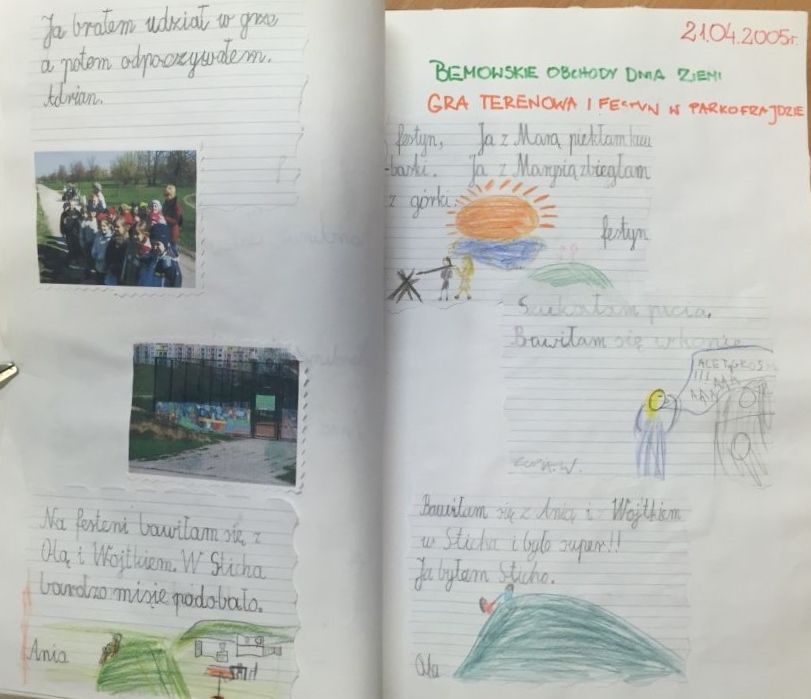 Ja brałem udział w grze
a potem odpoczywałem.
Adrian.
Na festeni bawiłam się z
Olą i Wojtkiem. W Sticha
bardzo misię podobało.
Ania
21.04.2005r.
BEMOWSKIE OBCHODY DNIA ZIEMI
GRA TERENOWA I FESTYN W PARKOFRAJDZIE
festyn, Ja z Marą piekłam kieł
-baski. Ja z Marysią zbiegłam
z górki.
festyn
Szukałam picia.
Bawiłam się w konie
ALE TŁOS
!!!
AAA
AAA
Zuzia. W.
Bawiłam się z Anią i Wojtkiem
w Sticha i było super!!
Ja byłam Sticho.
Ola